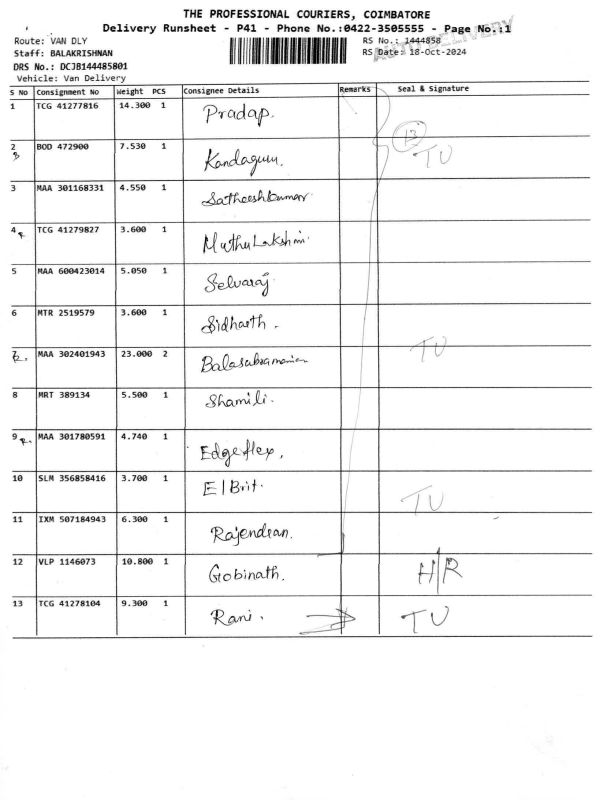 THE PROFESSIONAL COURIERS, COIMBATORE
Delivery Runsheet - P41 - Phone No.:0422-3505555 - Page No.:1
Route: VAN DLY
RS No.: 1444858
AUTO DELIVERY
Staff: BALAKRISHNAN
RS Date: 18-Oct-2024
DRS No.: DCJB144485801
Vehicle: Van Delivery
S No Consignment No Weight PCS Consignee Details Remarks Seal & Signature
1 TCG 41277816 14.300 1 Pradap.
13
2 BOD 472900 7.530 1 Kandaguru. TU
3 MAA 301168331 4.550 1 Satheeshkumar
4 TCG 41279827 3.600 1 Muthu Lakshmi.
5 MAA 600423014 5.050 1 Selvaraj
6 MTR 2519579 3.600 1 Sidharth.
7 MAA 302401943 23.000 2 Balasubramanian TU
8 MRT 389134 5.500 1 Shamili.
9 MAA 301780591 4.740 1 Edgeflex.
10 SLM 356858416 3.700 1 El Brit. TU
11 IXM 507184943 6.300 1 Rajendran.
12 VLP 1146073 10.800 1 Gobinath. H/R
13 TCG 41278104 9.300 1 Rani. TU